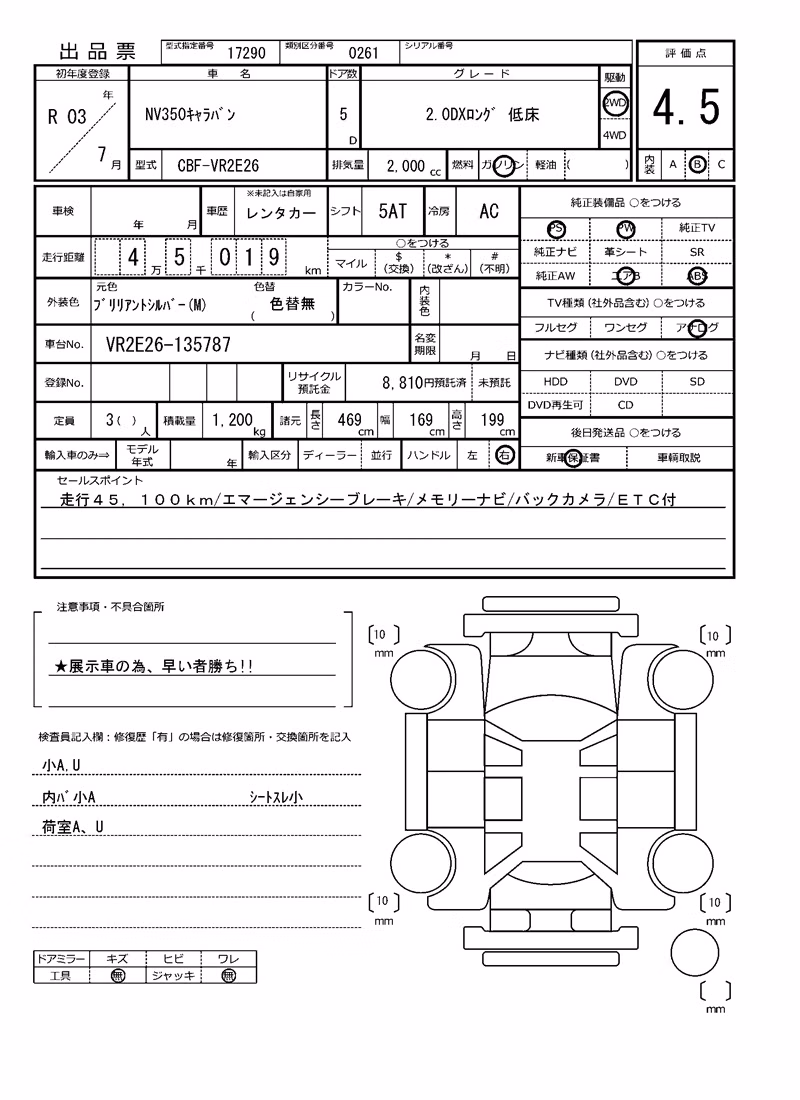 出品票 型式指定番号 17290 類別区分番号 0261 シリアル番号
評価点
4.5
内装 A B C
初年度登録 車名 ドア数 グレード 駆動
R 03 年 7 月 NV350ｷｬﾗﾊﾞﾝ 5 D 2.0DXﾛﾝｸﾞ 低床 2WD
4WD
型式 CBF-VR2E26 排気量 2,000 cc 燃料 ガソリン 軽油 ( )
車検 年 月 車歴 ※未記入は自家用 レンタカー シフト 5AT 冷房 AC
走行距離 4 万 5 千 0 1 9 km
○をつける
マイル $(交換) *(改ざん) #(不明)
外装色 元色 ﾌﾞﾘﾘｱﾝﾄｼﾙﾊﾞｰ(M) 色替 ( 色替無 ) カラーNo. 内装色
車台No. VR2E26-135787 名変期限 月 日
登録No. リサイクル預託金 8,810円預託済 未預託
定員 3( ) 人 積載量 1,200 kg 諸元 長さ 469 cm 幅 169 cm 高さ 199 cm
輸入車のみ⇒ モデル年式 年 輸入区分 ディーラー 並行 ハンドル 左 右
純正装備品 ○をつける
PS PW 純正TV
純正ナビ 革シート SR
純正AW エアB ABS
TV種類(社外品含む)○をつける
フルセグ ワンセグ アナログ
ナビ種類(社外品含む)○をつける
HDD DVD SD
DVD再生可 CD
後日発送品 ○をつける
新車保証書 車輌取説
セールスポイント
走行４５，１００ｋｍ/エマージェンシーブレーキ/メモリーナビ/バックカメラ/ＥＴＣ付
注意事項・不具合箇所
★展示車の為、早い者勝ち!!
検査員記入欄：修復歴「有」の場合は修復箇所・交換箇所を記入
小A,U
内ﾊﾞ小A ｼｰﾄｽﾚ小
荷室A、U
ドアミラー キズ ヒビ ワレ
工具 無 ジャッキ 無
10 mm
10 mm
10 mm
10 mm
mm